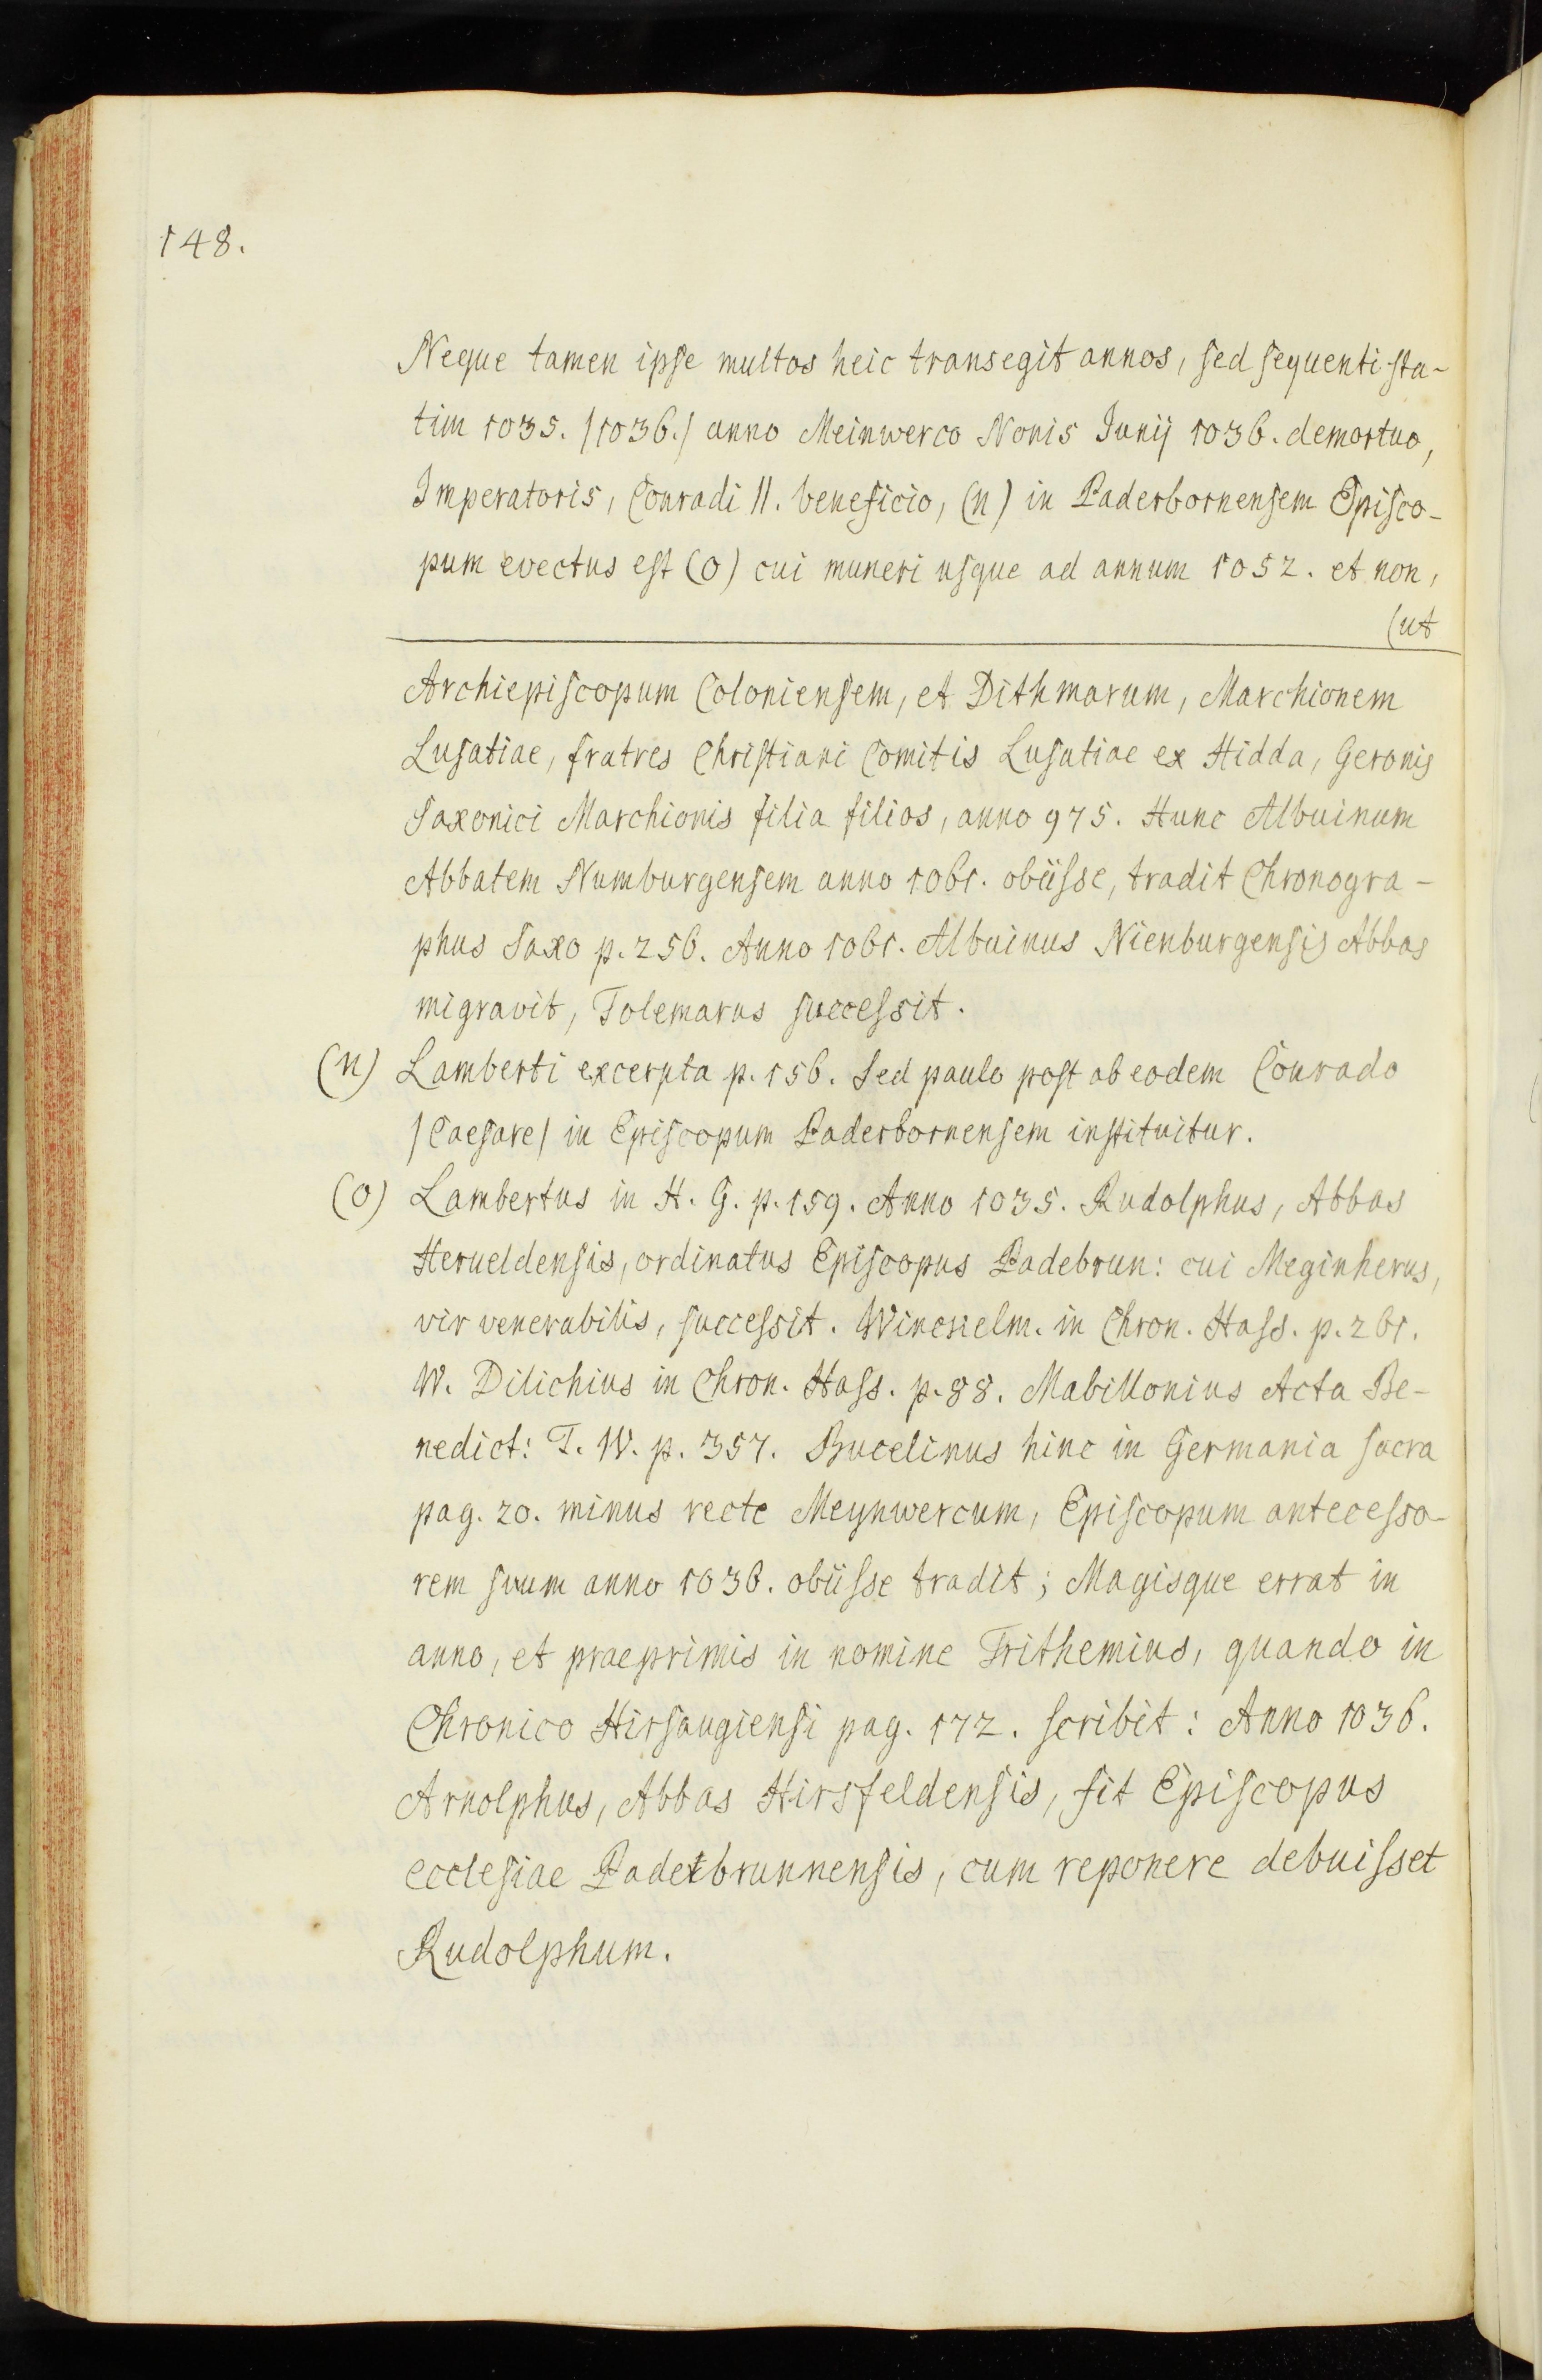 148.
Neque tamen ipse multos heic transegit annos, sed sequenti sta-
tim 1035. /1036./ anno Meinwerco Nonis Junij 1036. demortuo,
Imperatoris, Conradi II. beneficio, (n) in Paderbornensem Episco-
pum evectus est (o) cui muneri usque ad annum 1052. et non,
(ut
Archiepiscopum Coloniensem, et Dithmarum, Marchionem
Lusatiae, fratres Christiani Comitis Lusatiae ex Hidda, Geronis
Saxonici Marchionis filia filios, anno 975. Hunc Albuinum
Abbatem Numburgensem anno 1061. obiisse, tradit Chronogra-
phus Saxo p. 256. Anno 1061. Albuinus Nienburgensis Abbas
migravit, Tolemarus successit.
(n) Lamberti excerpta p. 156. Sed paulo post ab eodem Conrado
/Caesare/ in Episcopum Paderbornensem instituitur.
(o) Lambertus in H. G. p. 159. Anno 1035. Rudolphus, Abbas
Herueldensis, ordinatus Episcopus Padebrun: cui Meginherus,
vir venerabilis, successit. Winckelm. in Chron. Hass. p. 261.
W. Dilichius in Chron. Hass. p. 88. Mabillonius Acta Be-
nedict: T. IV. p. 357. Bucelinus hinc in Germania sacra
pag. 20. minus recte Meynwercum, Episcopum antecesso-
rem suum anno 1036. obiisse tradit; Magisque errat in
anno, et praeprimis in nomine Trithemius, quando in
Chronico Hirsaugiensi pag. 172. scribit: Anno 1036.
Arnolphus, Abbas Hirsfeldensis, fit Episcopus
ecclesiae Paderbrunnensis, cum reponere debuisset
Rudolphum.